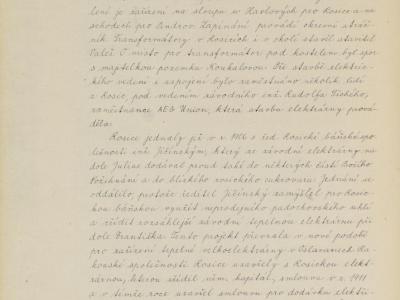 lení je zařízení na sloupu v Havlových pro Rosice a na
schodech pro Ondrov. Zapínání prováděl okresní strážník
Transformátory v Rosicích i v okolí stavěl stavitel
Valeš. O místo pro transformátor pod kostelem byl spor
s majitelkou pozemku Koukalovou. Při stavbě elektric-
kého vedení a zapojení bylo zaměstnáno několik lidí
z Rosic, pod vedením závodního inž. Rudolfa Tichého,
zaměstnance AEG Union, která stavbu elektrárny prová-
děla.
Rosice jednaly již v r. 1906 s řed. Rosické báňské spo-
lečnosti inž. Jičínským, který ze závodní elektrárny na
dole Julius dodával proud také do některých částí Božího
Požehnání a do blízkého rosického cukrovaru. Jednání se
oddálilo, protože ředitel Jičínský zamýšlel pro Rosic-
kou báňskou využít neprodejného padochovského uhlí
a zřídit rozsáhlejší závodní tepelnou elektrárnu při
dole Františka. Tento projekt převzala v nové podobě
pro zařízení tepelné velkoelektrárny v Oslavanech Ra-
kouská společnost. Rosice uzavřely s Rosickou elekt-
rárnou, kterou zřídil víd. kapitál, smlouvu v r. 1911
a v témže roce uzavřel smlouvu pro dodávku elektři-